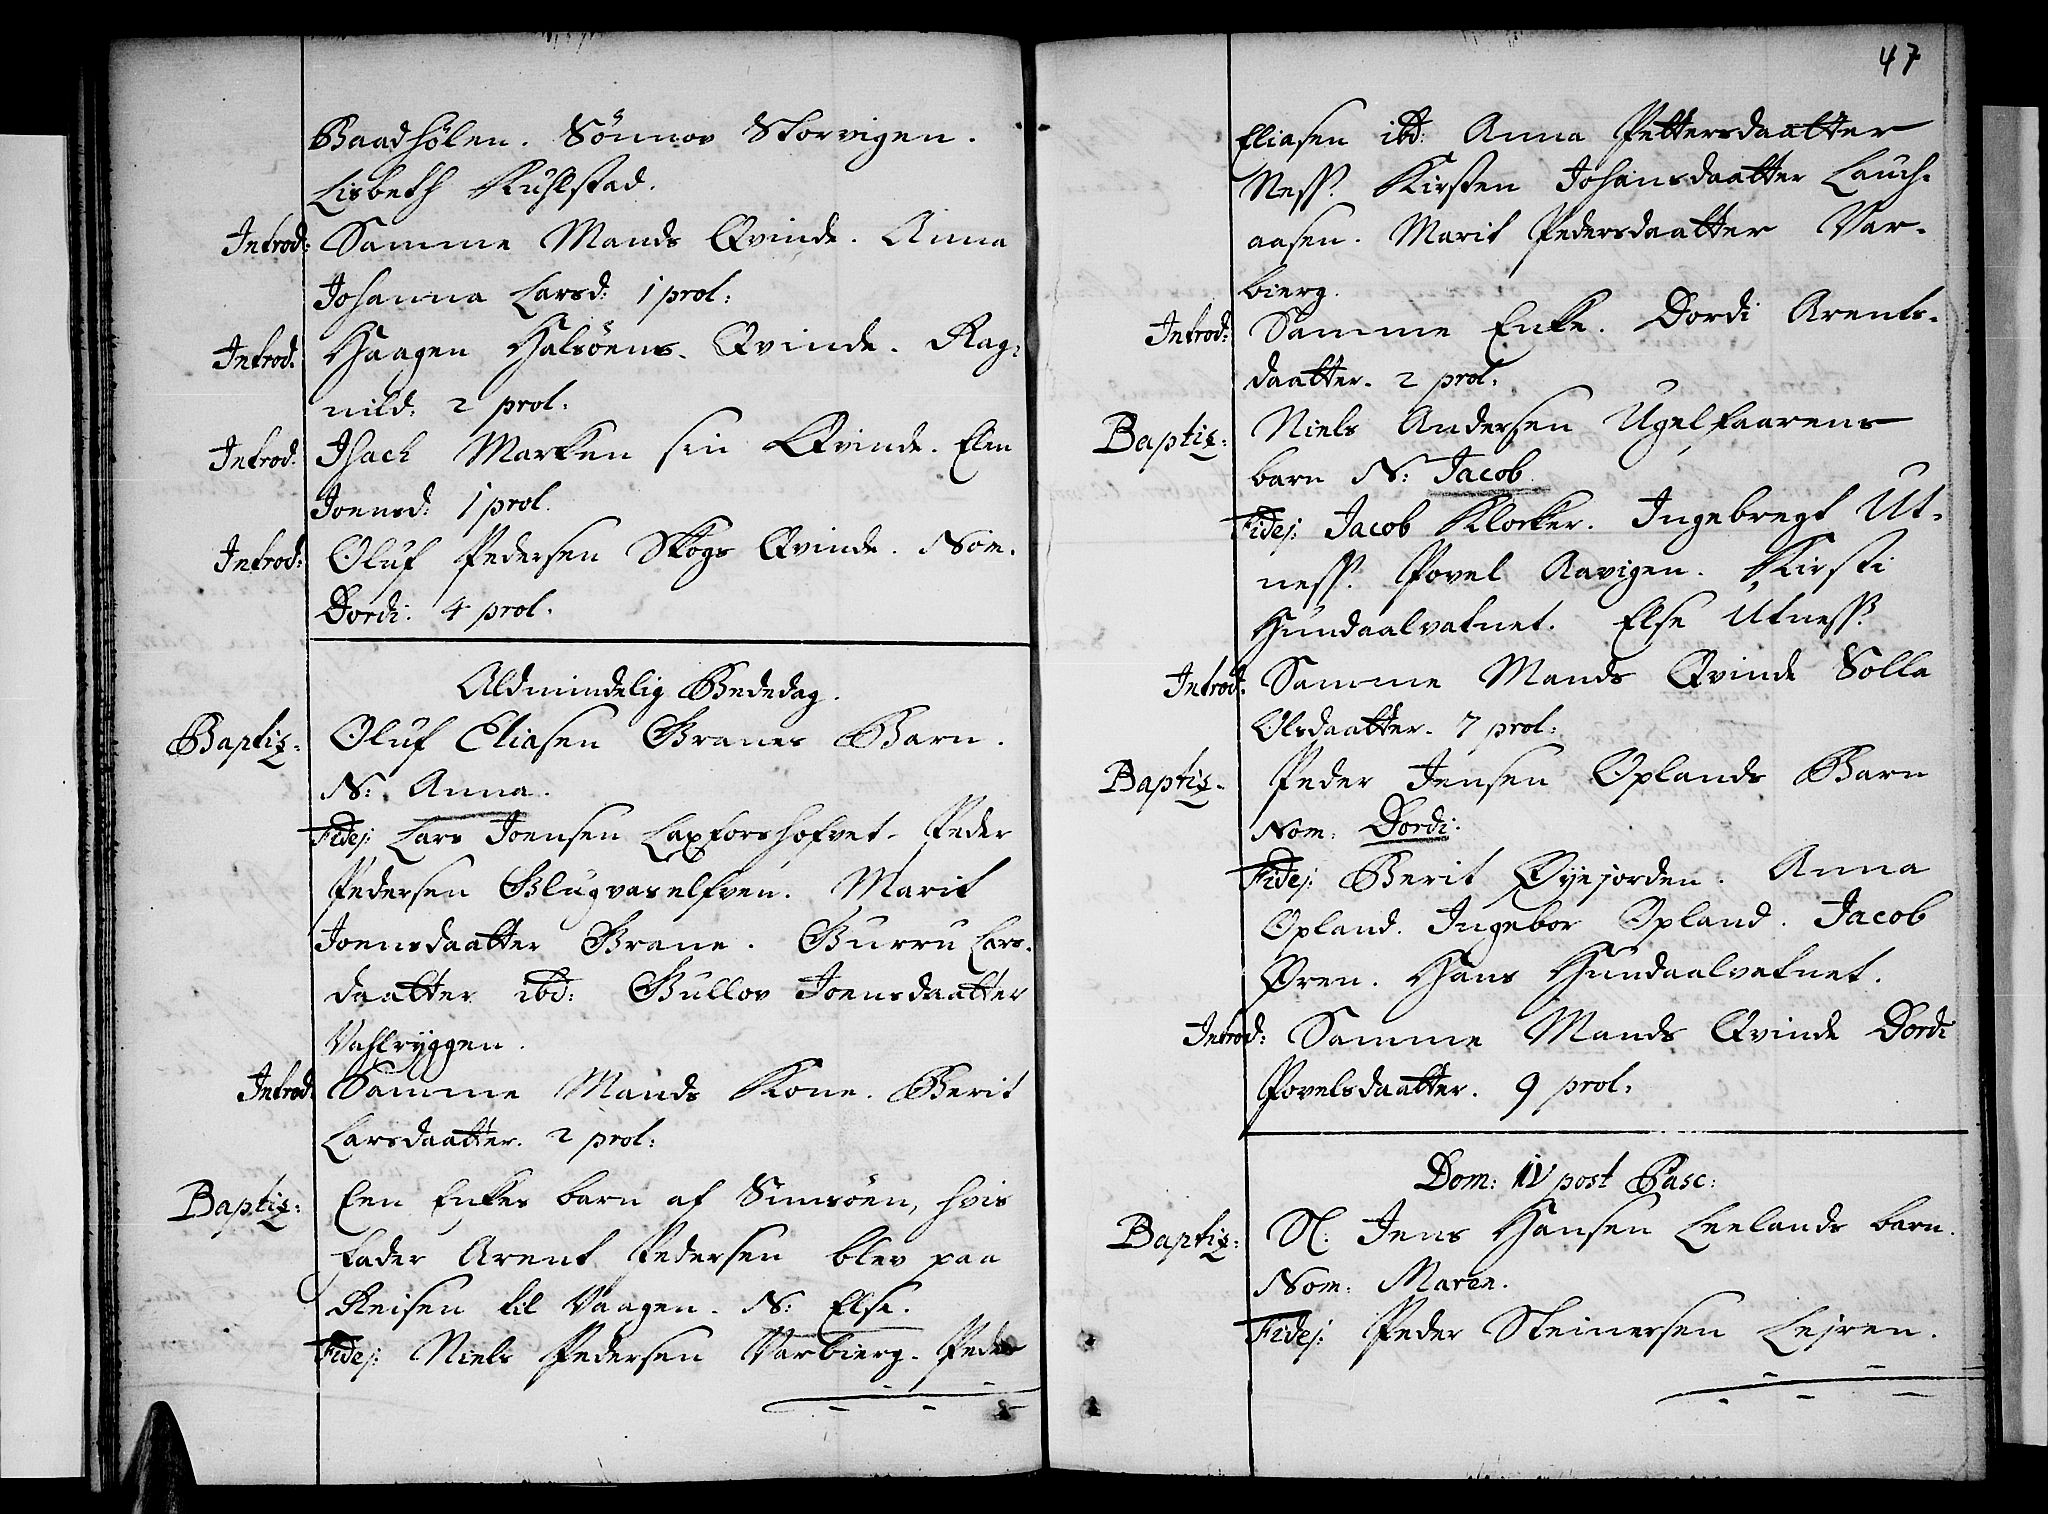 Baadhølen. Sönnov Storvigen.
Lisbeth Kuhlstad.
Introd: Samme Mands Qvinde. Anna
Johanna Larsd: 1 prol:
Introd: Haagen Halsöens Qvinde. Rag:
nild: 2 prol:
Introd: Isach Marken sin Qvinde. Elen
Joensd: 1 prol.
Introd: Oluf Pedersen Skogs Qvinde. Nom.
Dordi: 4 prol.
Aldmindelig Bededag.
Baptiz: Oluf Eliasen Granes Barn.
N: Anna.
Fidej: Lars Joensen Laxforshofvet. Peder
Pedersen Glugvaselfven. Marit
Joensdaatter Grane. Gurru Lars.
daatter ibd: Gullov Joensdaatter
Vahlryggen.
Introd: Samme Mands Kone. Berit
Larsdaatter. 2 prol:
Baptiz: Een Enkes barn af Simsöen, hvis
fader Arent Pedersen blev paa
Reisen til Vaagen. N: Else.
Fidej: Niels Pedersen Varbierg. Peder
47
Eliasen ibd: Anna Pettersdaatter
Ness. Kirsten Johansdaatter Lauch-
aasen. Marit Pedersdaatter Var-
bierg.
Introd: Samme Enke. Dordi Arents-
daatter. 2 prol:
Baptiz: Niels Andersen Ugelfaarens
barn N: Jacob.
Fidej: Jacob Klocker. Ingebregt Ut-
ness. Povel Aavigen. Kirsti
Hundaalvatnet. Else Utness.
Introd: Samme Mands Qvinde Solla
Olsdaatter. 7 prol:
Baptiz. Peder Jensen Oplands Barn
Nom: Dordi:
Fidej: Berit Øyejorden. Anna
Opland. Ingebor Opland. Jacob
Øren. Hans Hundaalvatnet.
Introd: Samme Mands Qvinde Dordi
Povelsdaatter. 9 prol:
Dom: IV post Pasc:
Baptiz: Sl: Jens Hansen Leelands barn.
Nom: Maren.
Fidej: Peder Steinersen Lejren.